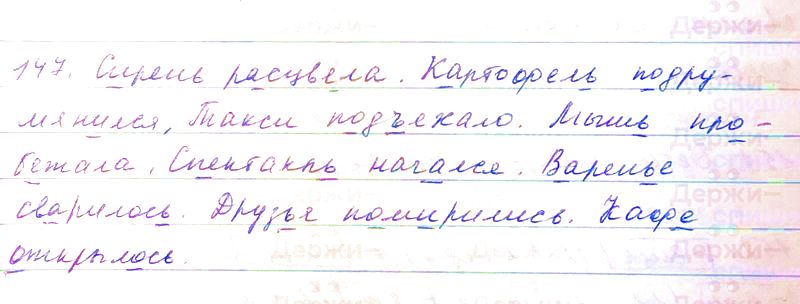 Держи-
147. Сирень расцвела. Картофель подру-
мянился, Такси подъехало. Мышь про-
бежала. Спектакль начался. Варенье
сварилось. Друзья помирились. Кафе
открылось.